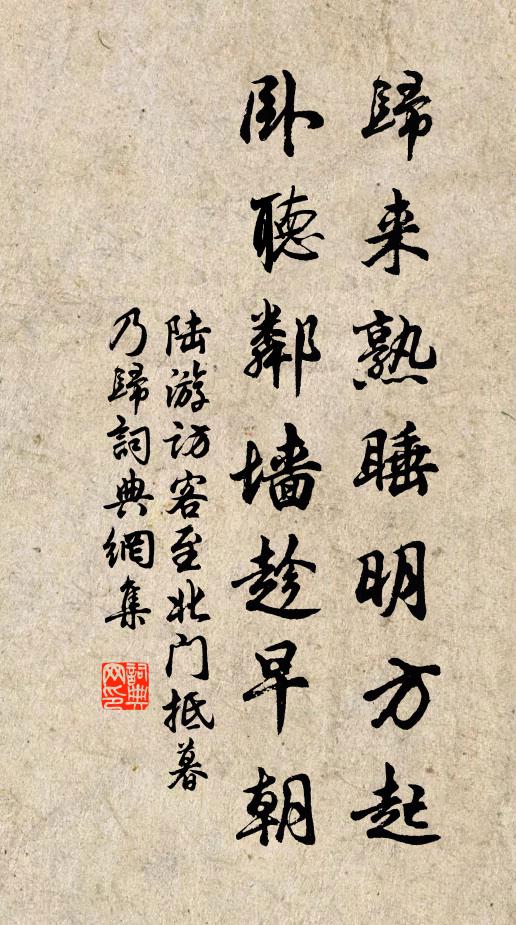 歸来熟睡明方起
卧聽鄰墻趁早朝
陆游访客至北门抵暮
乃歸詞典網集
詞典
网印